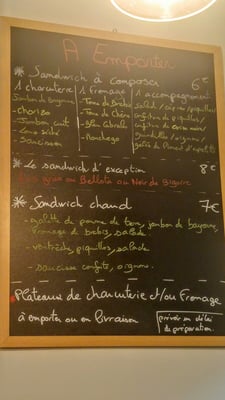 A Emporter
* Sandwich à composer 6€
1 charcuterie 1 fromage 1 accompagnement
Jambon de Bayonne
- chorizo
- Jambon cuit
- Lomo
- Saucisson
- Tome de Brebis
- Tome de Chèvre
- Bleu
- Manchego
salade / piquillos/
confiture de piquillos/
confiture de cerise noire
guindillas / oignons/
gelée de Piment d'espelette
* Le sandwich d'exception 8€
ou Bellota ou Noir de Bigorre
* Sandwich chaud 7€
- galette de pomme de terre, jambon de bayonne,
fromage de brebis, salade
- ventrèche, piquillos, salade
- saucisse confite, oignons.
Plateaux de charcuterie et/ou fromage
à emporter ou en livraison
prévoir un délai
de préparation.